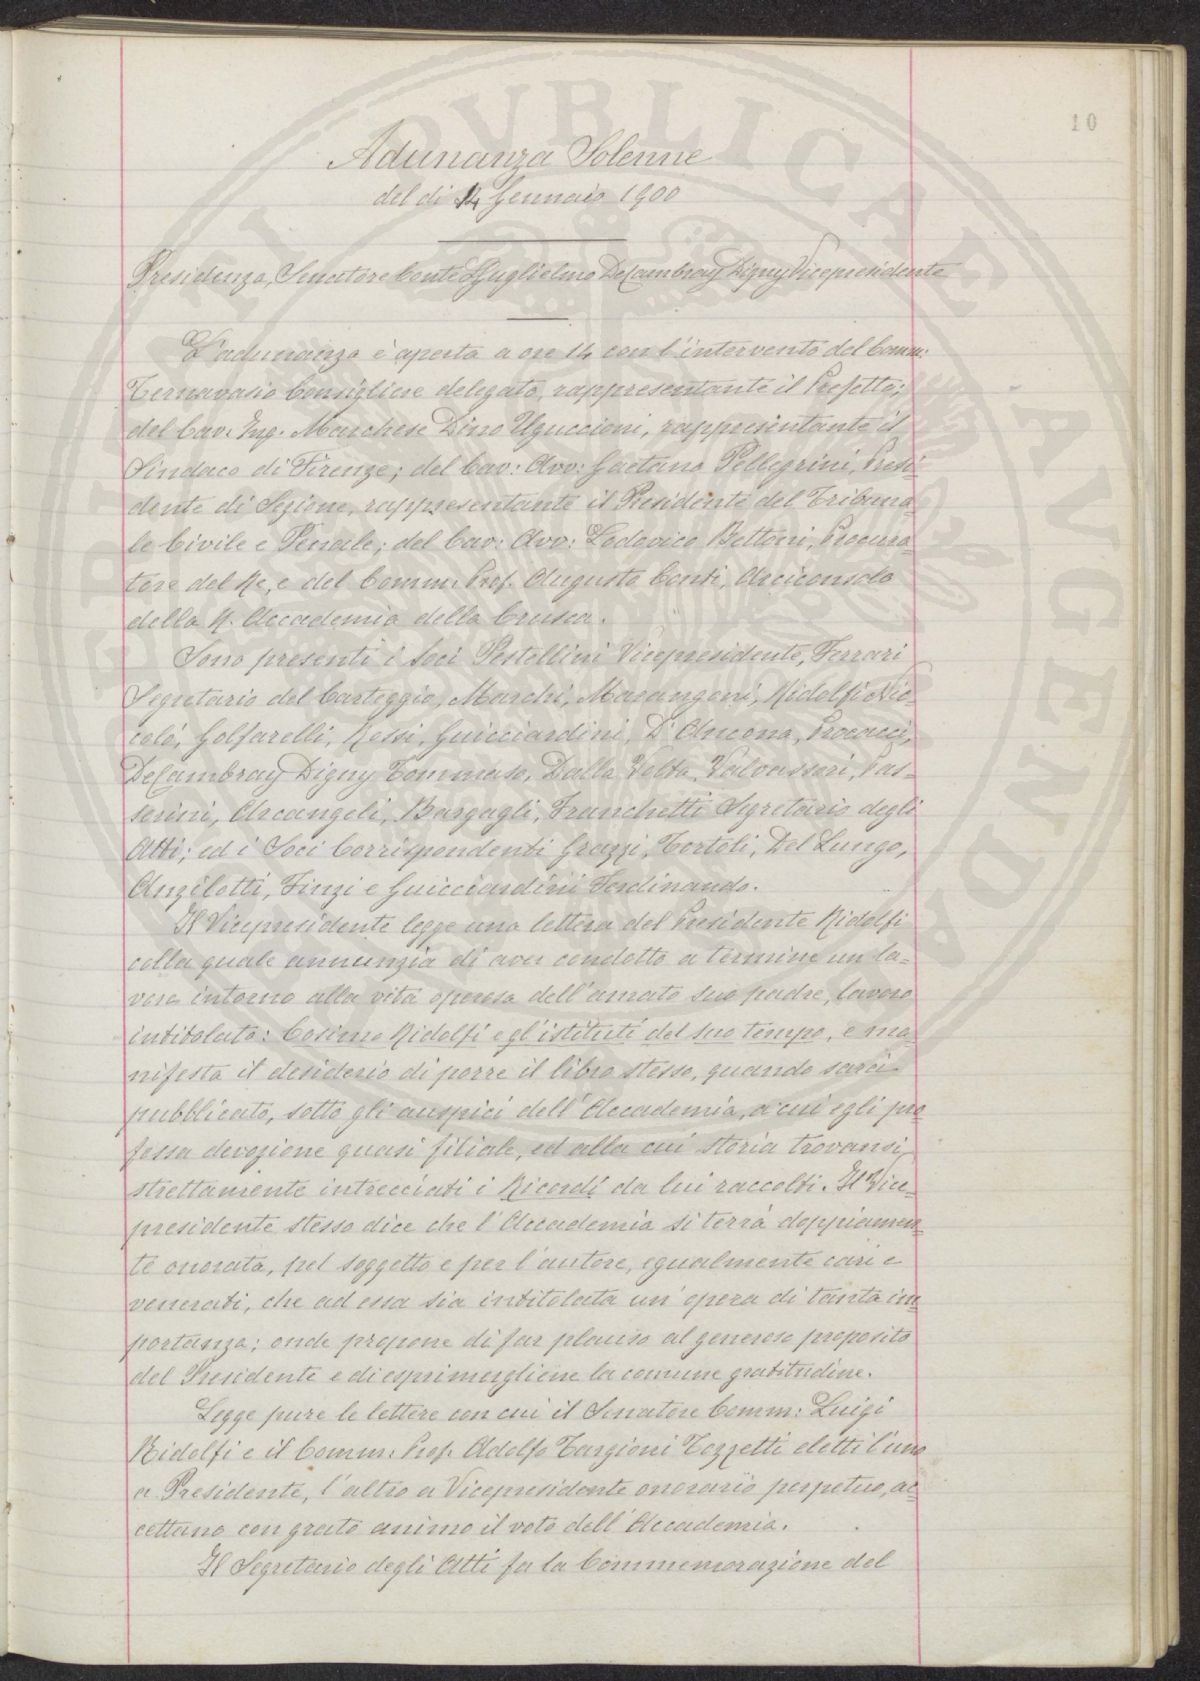 10
Adunanza Solenne
del dì 14 Gennaio 1900
Presidenza, Senatore Conte Guglielmo DeCambray Digny Vicepresidente
L'adunanza è aperta a ore 14 con l'intervento del Comm:
Ternavasio Consigliere delegato, rappresentante il Prefetto;
del Cav. Ing. Marchese Dino Uguccioni, rappresentante il
Sindaco di Firenze; del Cav: Avv: Gaetano Pellegrini, Presi-
dente di Sezione, rappresentante il Presidente del Tribuna-
le Civile e Penale; del Cav: Avv: Lodovico Bettoni, Procura-
tore del Re, e del Comm. Prof. Augusto Conti, Arciconsolo
della R. Accademia della Crusca.
Sono presenti i Soci Pestellini Vicepresidente, Ferrari
Segretario del Carteggio, Marchi, Marangoni, Ridolfi Nic-
colò, Golfarelli, Rossi, Guicciardini, D'Ancona, Procacci,
DeCambray Digny Tommaso, Dalla Volta, Valvassori, Pas-
serini, Arcangeli, Bargagli, Franchetti Segretario degli
Atti; ed i Soci Corrispondenti Grazzi, Tortoli, Del Lungo,
Anzilotti, Finzi e Guicciardini Ferdinando.
Il Vicepresidente legge una lettera del Presidente Ridolfi
colla quale annunzia di aver condotto a termine un la-
voro intorno alla vita operosa dell'amato suo padre, lavoro
intitolato: Cosimo Ridolfi e gl'istituti del suo tempo, e ma-
nifesta il desiderio di porre il libro stesso, quando sarà
pubblicato, sotto gli auspici dell'Accademia, a cui egli pro-
fessa devozione quasi filiale, ed alla cui storia trovansi
strettamente intrecciati i Ricordi da lui raccolti. Il Vice-
presidente stesso dice che l'Accademia si terrà doppiamen-
te onorata, pel soggetto e per l'autore, egualmente cari e
venerati, che ad essa sia intitolata un'opera di tanta im-
portanza; onde propone di far plauso al generoso proposito
del Presidente e di esprimergliene la comune gratitudine.
Legge pure le lettere con cui il Senatore Comm: Luigi
Ridolfi e il Comm. Prof. Adolfo Targioni Tozzetti eletti l'uno
a Presidente, l'altro a Vicepresidente onorario perpetuo, ac-
cettano con grato animo il voto dell'Accademia.
Il Segretario degli Atti fa la Commemorazione del